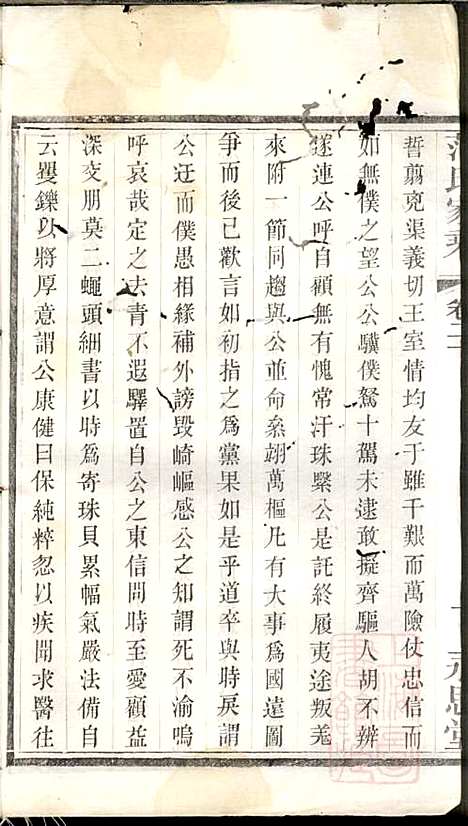 范氏家乘 卷二 永思堂
誓翦兇渠義切王室情均友于雖千艱而萬險仗忠信而
如無僕之望公公驥僕駑十駕未逮敢擬齊驅人胡不辨
遂連公呼自顧無有愧常汗珠繄公是託終履夷途叛羗
來附一節同趨與公並命叅翊萬樞凡有大事為國遠圖
爭而後已歡言如初指之為黨果如是乎道卒與時戾謂
公迂而僕愚相緣補外謗毀崎嶇感公之知謂死不渝嗚
呼哀哉定之去青不遐驛置自公之東信問時至愛顧益
深交朋莫二蠅頭細書以時為寄珠貝累幅氣嚴法備自
云矍鑠以將厚意謂公康健曰保純粹忽以疾聞求醫往